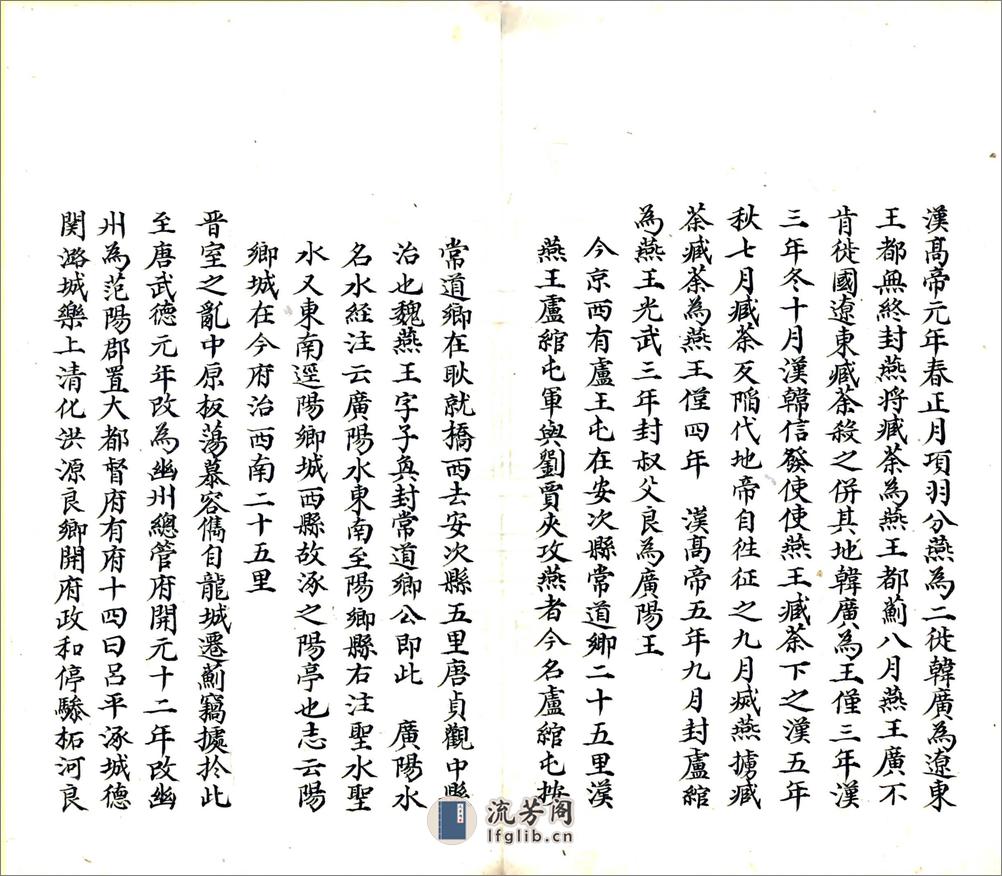 漢高帝元年春正月項羽分燕為二徙韓廣為遼東
王都無終封燕將臧荼為燕王都薊八月燕王廣不
肯徙國遼東臧荼殺之併其地韓廣為王僅三年漢
三年冬十月漢韓信發使使燕王臧荼下之漢五年
秋七月臧荼反陷代地帝自徃征之九月滅燕擄臧
荼臧荼為燕王僅四年 漢高帝五年九月封盧綰
為燕王光武三年封叔父良為廣陽王
今京西有盧王屯在安次縣常道鄉二十五里漢
燕王盧綰屯軍與劉賈夾攻燕者今名盧綰屯按
常道鄉在耿就橋西去安次縣五里唐貞觀中縣
治也魏燕王宇子奐封常道鄉公即此 廣陽水
名水經注云廣陽水東南至陽鄉縣右注聖水聖
水又東南逕陽鄉城西縣故涿之陽亭也志云陽
鄉城在今府治西南二十五里
晉室之亂中原板蕩慕容儁自龍城遷薊竊據扵此
至唐武德元年改為幽州總管府開元十二年改幽
州為范陽郡置大都督府有府十四曰呂平涿城德
関潞城樂上清化洪源良鄉開府政和停驂柘河良
流芳阁
lfglib.cn